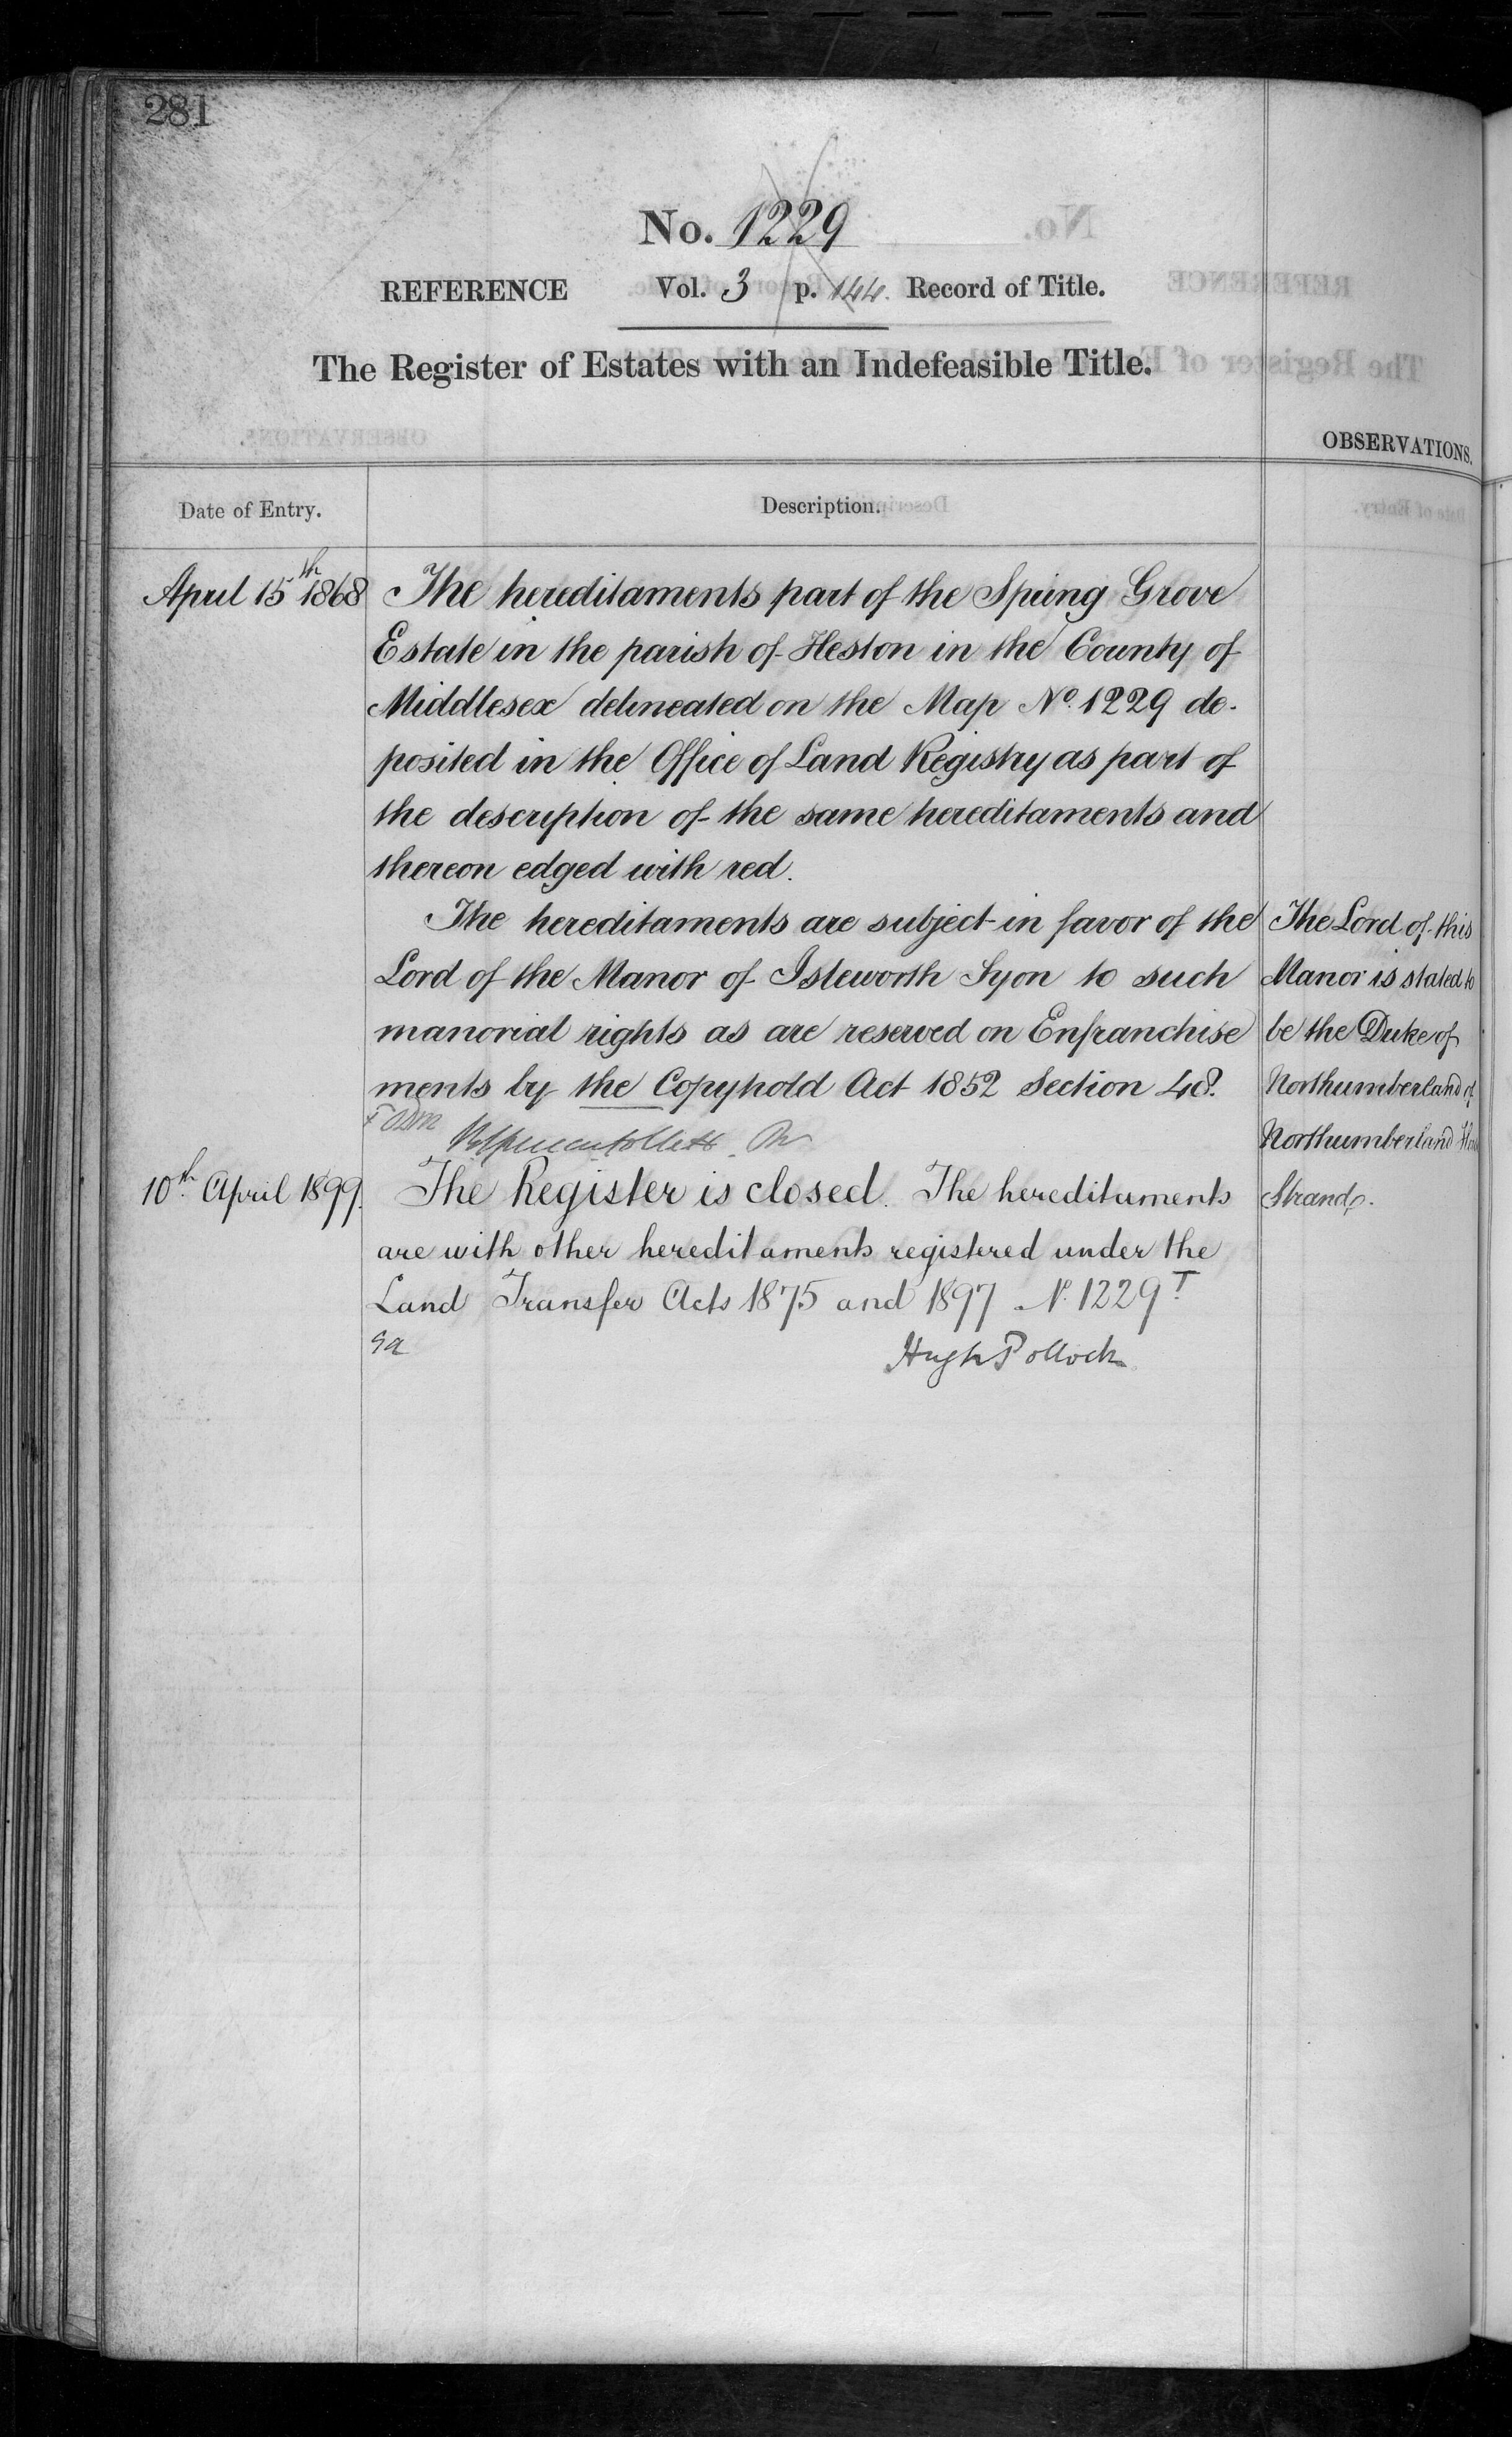 281
No. 1229
REFERENCE Vol. 3 p. 144. Record of Title.
The Register of Estates with an Indefeasible Title.
OBSERVATIONS.
Date of Entry. Description.
April 15th 1868 The hereditaments part of the Spring Grove
Estate in the parish of Heston in the County of
Middlesex delineated on the Map No. 1229 de-
posited in the Office of Land Registry as part of
the description of the same hereditaments and
thereon edged with red.
The hereditaments are subject in favor of the
Lord of the Manor of Isleworth Syon to such
manorial rights as are reserved on Enfranchise
ments by the Copyhold Act 1852 Section 48.
The Lord of this
Manor is stated to
be the Duke of
Northumberland of
Northumberland
Strand.
10th April 1899. The Register is closed. The hereditaments
are with other hereditaments registered under the
Land Transfer Acts 1875 and 1897 No. 1229T
Hugh Pollock